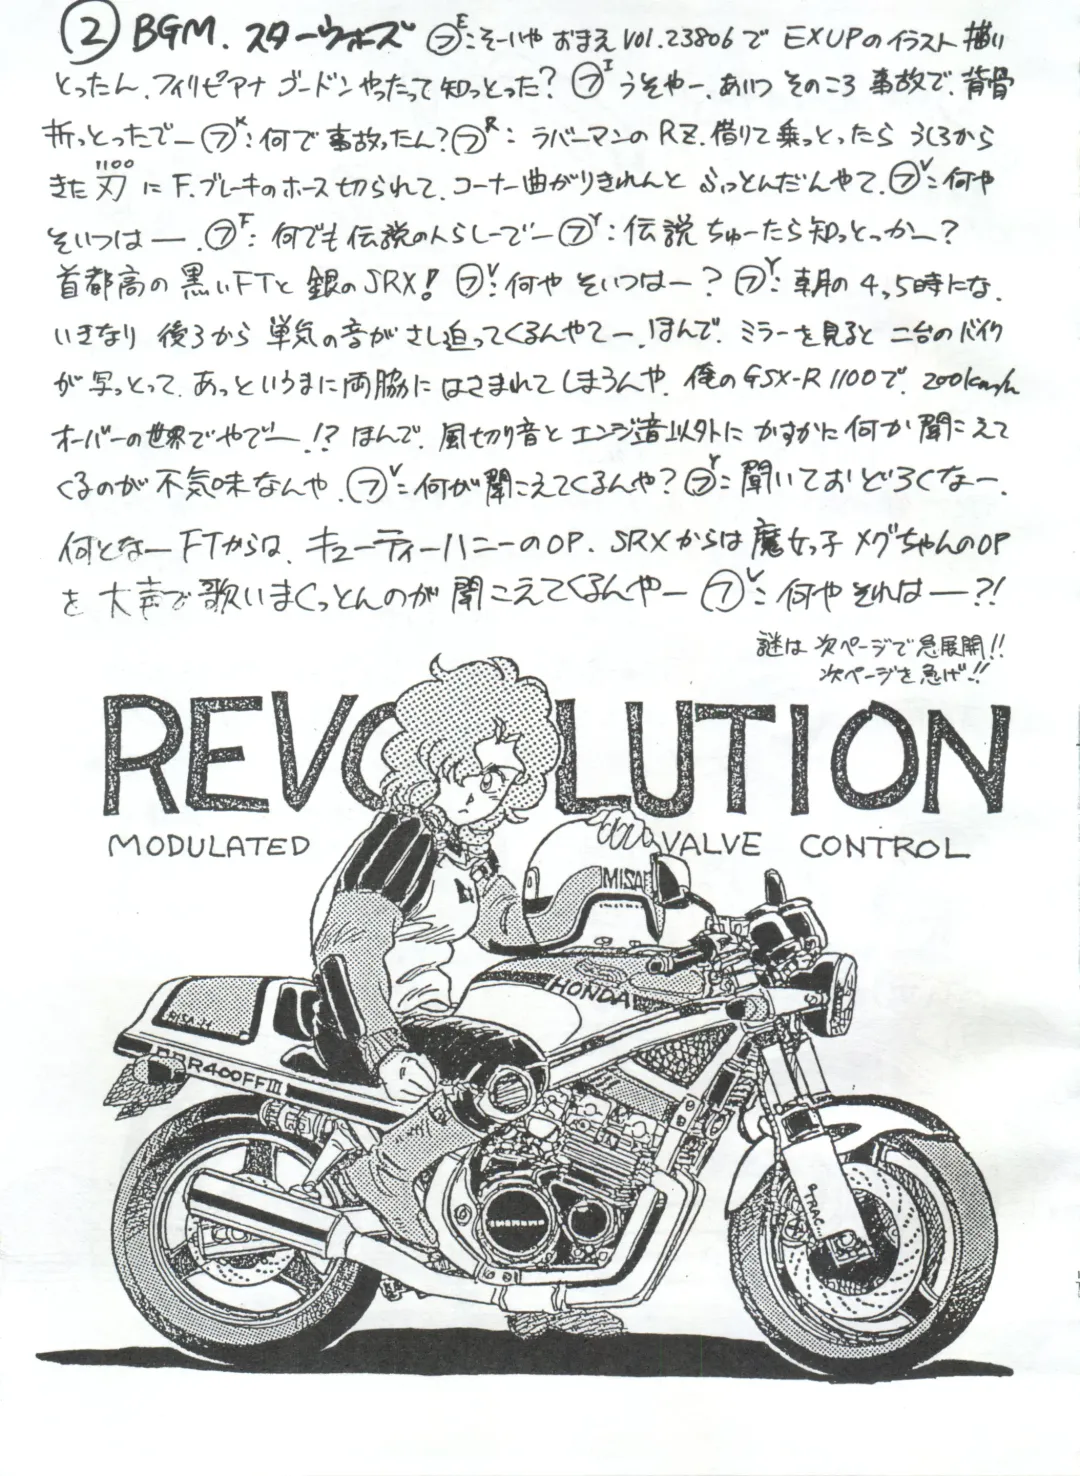 ② BGM. スターウォーズ ㋫E:そーいやおまえ Vol.23806で EXUPのイラスト描い
とったん、フィリピアナ ゴードンやったって知っとった? ㋫I うそやー、あいつ そのころ 事故で、背骨
折っとったでー ㋫K:何で事故ったん? ㋫R: ラバーマンのRZ、借りて乗っとったら うしろから
きた刃1100に F.ブレーキのホース切られて、コーナー曲がりきれんと ふっとんだんやて、㋫V:何や
そいつはー、㋫F:何でも伝説の人らしーでー ㋫Y:伝説ちゅーたら知っとっかー?
首都高の黒いFTと 銀のSRX! ㋫V:何や そいつはー? ㋫Y:朝の4,5時にな、
いきなり 後ろから 単気の音が さし迫ってくるんやてー、ほんで、ミラーを見ると 二台のバイク
が写っとって、あっというまに両脇に はさまれてしまうんや、俺のGSX-R 1100で、200km/h
オーバーの世界でやでー!? ほんで、風切り音と エンジン音以外に かすかに何か聞こえて
くるのが不気味なんや、㋫V:何が聞こえてくるんや? ㋫Y:聞いておどろくなー、
何となーFTからは、キューティーハニーのOP、SRXからは魔女っ子メグちゃんのOP
を大声で歌いまくっとんのが聞こえてくるんやー ㋫V:何やそれはー?!
謎は 次ページで急展開!!
次ページを急げ!!
REVOLUTION
MODULATED VALVE CONTROL
MISA
HONDA
R400FFIII